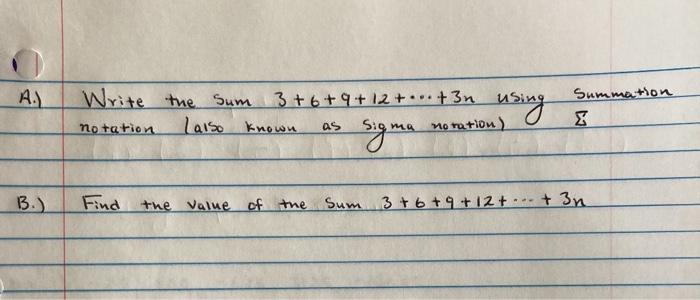 A.) Write the sum 3+6+9+12+...+3n using summation
notation (also known as sigma notation) Σ
B.) Find the value of the sum 3+6+9+12+...+3n